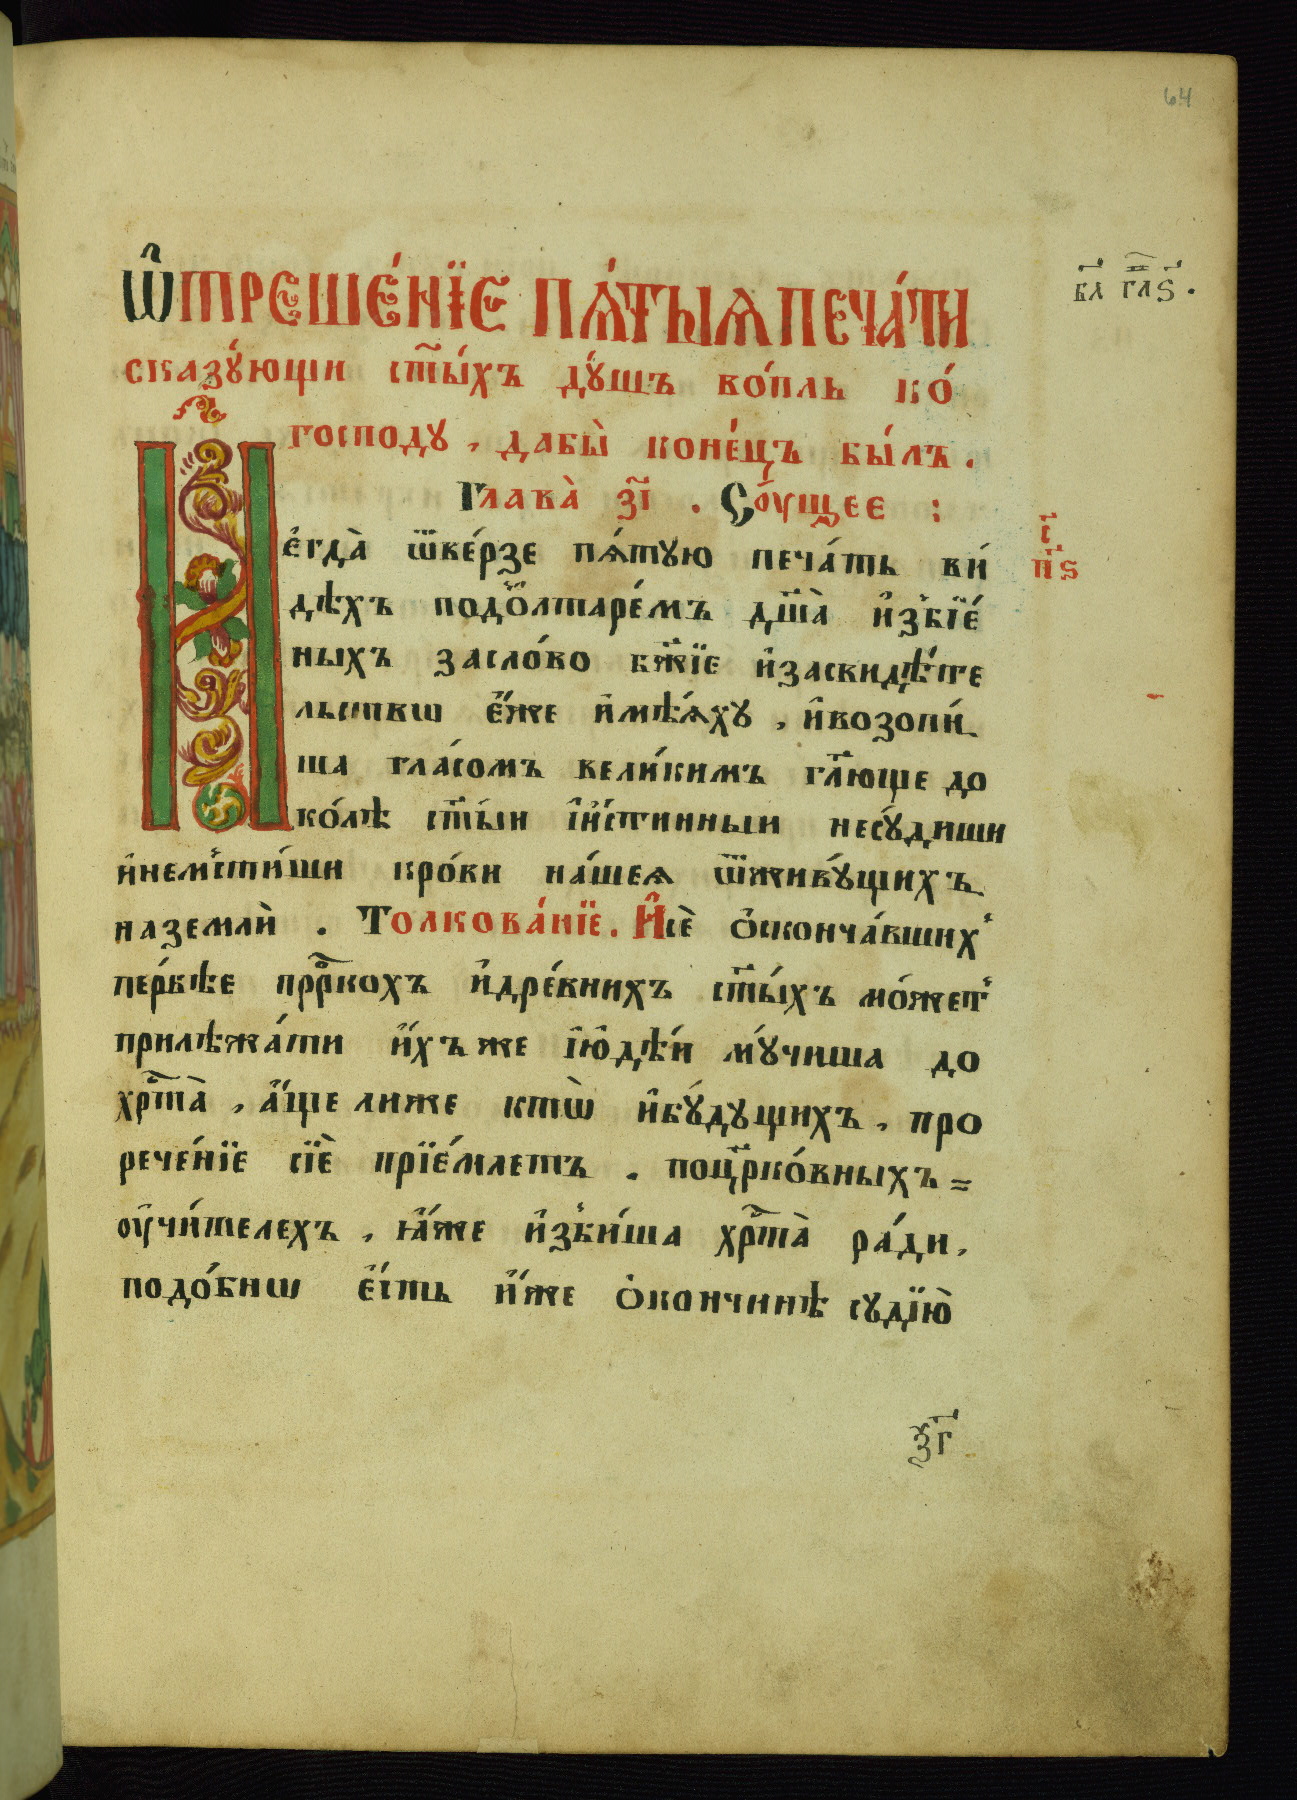 64
Ѿтреше́нїе пѧ́тыѧ печа́ти
сказꙋ́ющи ст҃ы́хъ дꙋ́шъ во́пль ко́
господꙋ , дабы̀ коне́цъ бы́лъ .
Глава̀ зі҃ . Со́ущее :
И҆ є҆гда̀ ѿве́рзе пѧ́тꙋю печа́ть ви́
дѣхъ подо҆лтаре́мъ дш҃а̀ и҆збїе́
ныхъ засло́во бж҃їе и҆засвидѣ́те
льствѡ є҆́же и҆мѣ́ѧхꙋ , и҆возопи́
ша гла́сомъ вели́кимъ гл҃юще до
ко́лѣ ст҃ы́и і҆и҆́стинныи несꙋ́диши
и҆немсти́ши кро́ви на́шеѧ ѿживꙋ́щихъ
наземлѝ . Толкова́нїе . И҆ сѐ ѡ҆сконча́вших
пе́рвѣе прⷪ҇ркохъ и҆дре́внихъ ст҃ы́хъ мо́жет
прилѣжа́ти и҆́хъже і҆ю҆дѣ́и мꙋ́чиша до
хрⷭ҇та̀ , а҆́ще лиже ктѡ̀ и҆бꙋ́дꙋщихъ , про
рече́нїе сїѐ прїе́млетъ . поцр҃ко́вныхъ
оу҆чи́телехъ , ꙗ҆́же и҆зби́ша хрⷭ҇та̀ ра́ди ,
подо́бнѡ є҆́сть и҆́же ѡ҆кончинѣ сꙋдїю̀
вл гл ѕ .
і
п҃ѕ
ѯ҃г